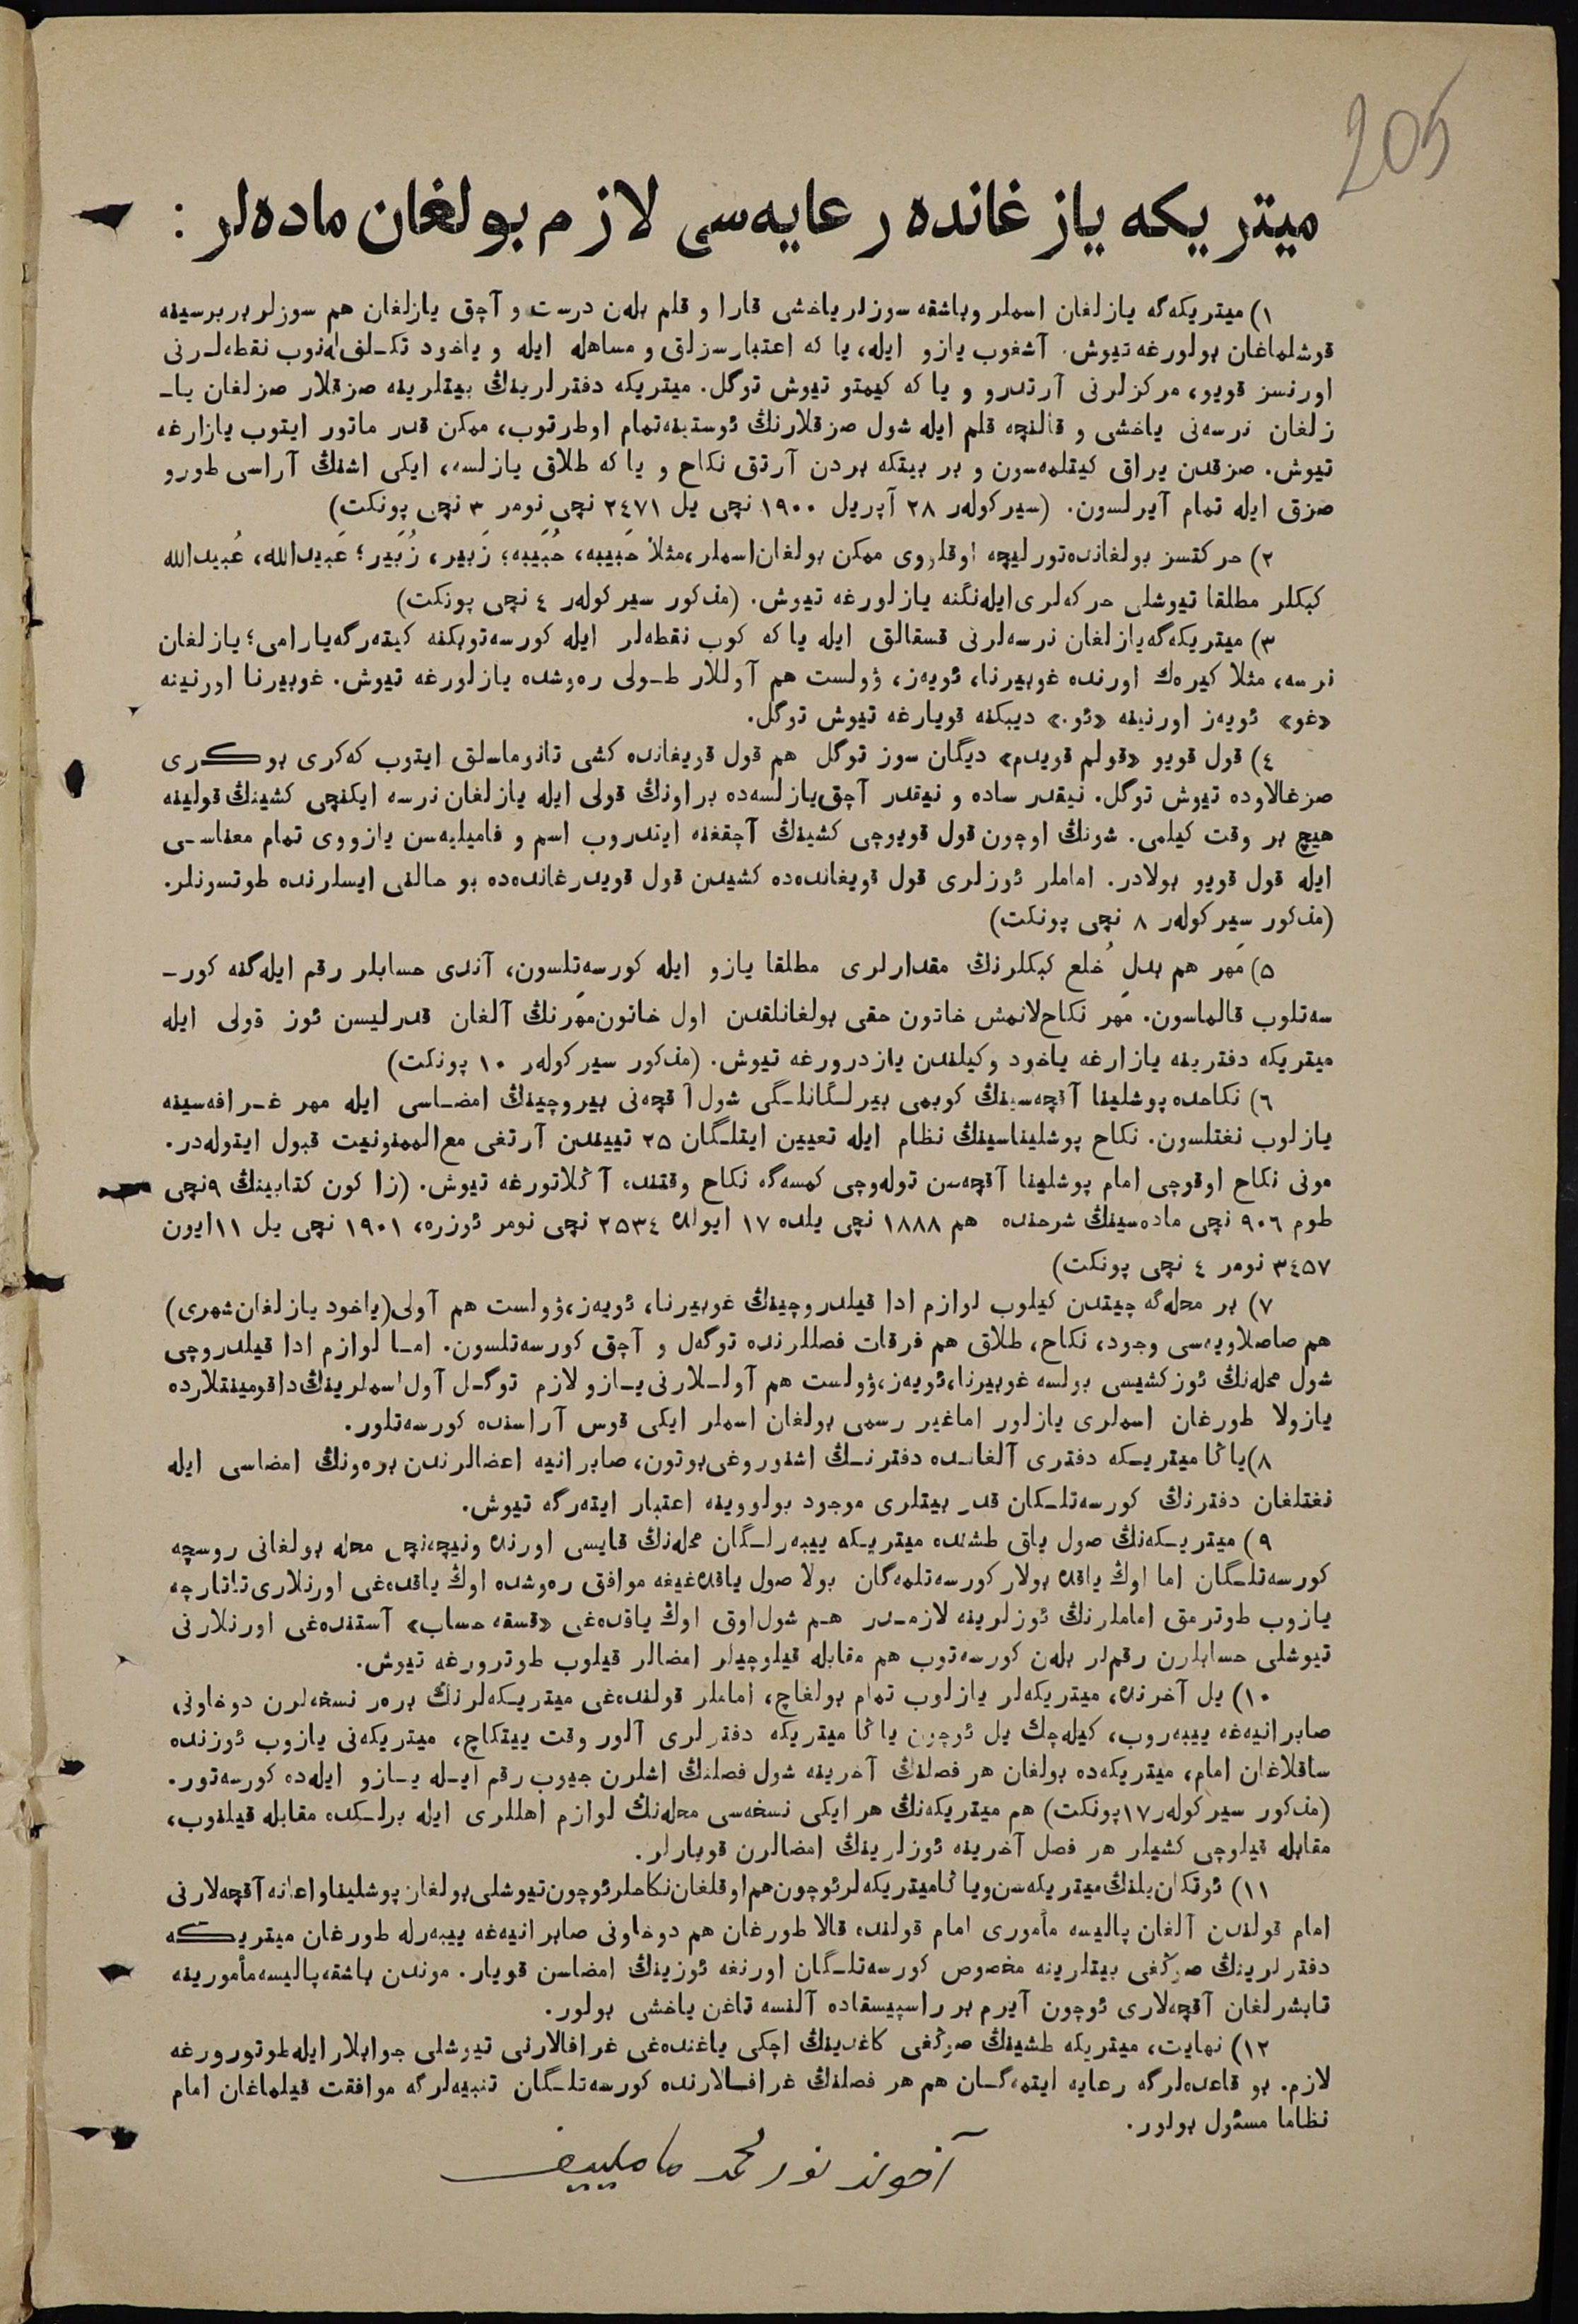 205
ميتريكه يازغانده رعايه‌سى لازم بولغان ماده‌لر :
١) ميتريكه‌گه يازلغان اسملر وباشقه سوزلر ياخشى قارا و قلم بله‌ن درست و آچق يازلغان هم سوزلر بربرسينه
قوشلماغان بولورغه تيوش. آشغوب يازو ايله، يا كه اعتبارسزلق و مساهله ايله و ياخود تكـلف له‌نوب نقطه‌لـرنى
اورنسز قويو، مركزلرنى آرتدرو و يا كه كيمتو تيوش توگل. ميتريكه دفترلرينڭ بيتلرينه صزقلار صزلغان يا-
زلغان نرسه‌نى ياخشى و قالنچه قلم ايله شول صزقلارنڭ ئوستينه‌تمام اوطرتوب، ممكن قدر ماتور ايتوب يازارغه
تيوش. صزقدن يراق كيتلمه‌سون و بر بيتكه بردن آرتق نكاح و يا كه طلاق يازلسه، ايكى اشنڭ آراسى طورو
صزق ايله تمام آيرلسون. (سيركوله‌ر ٢٨ آپريل ١٩٠٠ نچى يل ٢٤٧١ نچى نومر ٣ نچى پونكت)
٢) حركتسز بولغانده‌تورليچه اوقلووى ممكن بولغان‌اسملر، مثلا حَبيبه، حُبَيبه؛ زَبير، زُبَير؛ عَبيدالله، عُبيدالله
كبكلر مطلقا تيوشلى حركه‌لرى‌ايله‌نگنه يازلورغه تيوش. (مذكور سيركوله‌ر ٤ نچى پونكت)
٣) ميتريكه‌گه‌يازلغان نرسه‌لرنى قسقالق ايله يا كه كوب نقطه‌لر ايله كورسه‌توبكنه كيته‌رگه‌يارامى؛ يازلغان
نرسه، مثلا كيره‌ك اورنده غوبيرنا، ئويه‌ز، ۋولست هم آوللار طـولى ره‌وشده يازلورغه تيوش. غوبيرنا اورنينه
«غو» ئويه‌ز اورنينه «ئو.» ديبكنه قويارغه تيوش توگل.
٤) قول قويو «قولم قويدم» ديگان سوز توگل هم قول قويغانده كشى تانوماسلق ايتوب كه‌كرى بوكرى
صزغالاوده تيوش توگل. نيقدر ساده و نيقدر آچق‌يازلسه‌ده براونڭ قولى ايله يازلغان نرسه ايكنچى كشينڭ قولينه
هيچ بر وقت كيلمى. شونڭ اوچون قول قويوچى كشينڭ آچقغنه ايتدروب اسم و فاميليه‌سن يازووى تمام معناسـى
ايله قول قويو بولادر. اماملر ئوزلرى قول قويغانده‌ده كشيدن قول قويدرغانده‌ده بو حالنى ايسلرنده طوتسونلر.
(مذكور سيركوله‌ر ٨ نچى پونكت)
٥) مَهر هم بدلِ خُلع كبكلرنڭ مقدارلرى مطلقا يازو ايله كورسه‌تلسون، آندى حسابلر رقم ايله‌گنه كور-
سه‌تلوب قالماسون. مَهر نكاح‌لانمش خاتون حقى بولغانلقدن اول خاتون‌مَهرنڭ آلغان قدرليسن ئوز قولى ايله
ميتريكه دفترينه يازارغه ياخود وكيلندن يازدرورغه تيوش. (مذكور سيركوله‌ر ١٠ پونكت)
٦) نكاحده پوشلينا آقچه‌سينڭ كوبمى بيرلـگانلـگى شول‌آقچه‌نى بيروچينڭ امضـاسى ايله مهر غـرافه‌سينه
يازلوب نغتلسون. نكاح پوشليناسينڭ نظام ايله تعيين ايتلـگان ٢٥ تييندن آرتغى مع‌الممنونيت قبول ايتوله‌در.
مونى نكاح اوقوچى امام پوشلينا آقچه‌سن توله‌وچى كمسه‌گه نكاح وقتنده آڭلاتورغه تيوش. (زاكون كتابينڭ ٩نچى
طوم ٩٠٦ نچى ماده‌سينڭ شرحنده هم ١٨٨٨ نچى يلده ١٧ ايولده ٢٥٣٤ نچى نومر ئوزره، ١٩٠١ نچى يل ١١ايون
٣٤٥٧ نومر ٤ نچى پونكت)
٧) بر محله‌گه چيتدن كيلوب لوازم ادا قيلدروچينڭ غوبيرنا، ئويه‌ز، ۋولست هم آولى(ياخود يازلغان‌شهرى)
هم صاصلاويه‌سى وجود، نكاح، طلاق هم فرقات فصللرنده توگه‌ل و آچق كورسه‌تلسون. امـا لوازم ادا قيلدروچى
شول محله‌نڭ ئوز كشيسى بولسه غوبيرنا،ئويه‌ز،ۋولست هم آولـلارنى يـازو لازم توگـل آول‌اسملرينڭ‌داقومينتلارده
يازولا طورغان اسملرى يازلور اماغير رسمى بولغان اسملر ايكى قوس آراسنده كورسه‌تلور.
٨) ياڭا ميتريـكه دفترى آلغاندـه دفترنـڭ اشنوروغى‌بوتون، صابرانيه اعضالرندن بره‌ونڭ امضاسى ايله
نغتلغان دفترنڭ كورسه‌تلـكان قدر بيتلرى موجود بولووينه اعتبار ايته‌رگه تيوش.
٩) ميتريـكه‌نڭ صول ياق طشنده ميتريـكه ييبه‌رلـگان محله‌نڭ قايسى اورنده ونيچه‌نچى محله بولغانى روسچه
كورسه‌تلـگان اما اوڭ ياقده بولار كورسه‌تلمه‌گان بولا صول ياقده‌غيغه موافق ره‌وشده اوڭ ياقده‌غى اورنلارى‌تاتارچه
يازوب طوترمق اماملرنڭ ئوزلرينه لازمـدر هـم شول‌اوق اوڭ ياقده‌غى «قسقه حساب» آستنده‌غى اورنلارنى
تيوشلى حسابلرن رقم‌لر بله‌ن كورسه‌توب هم مقابله قيلوچيلر امضالر قيلوب طوترورغه تيوش.
١٠) يل آخرنده، ميتريكه‌لر يازلوب تمام بولغاچ، اماملر قولنده‌غى ميتريـكه‌لرنڭ بره‌ر نسخه‌لرن دوخاونى
صابرانيه‌غه ييبه‌روب، كيله‌چك يل ئوچون ياڭا ميتريكه دفترلرى آلور وقت ييتكاچ، ميتريكه‌نى يازوب ئوزنده
ساقلاغان امام، ميتريكه‌ده بولغان هر فصلنڭ آخرينه شول فصلنڭ اشلرن جيوب رقم ايـله يـازو ايله‌ده كورسه‌تور.
(مذكور سيركوله‌ر١٧پونكت) هم ميتريكه‌نڭ هر ايكى نسخه‌سى محله‌نڭ لوازم اهللرى ايله برلـكده مقابله قيلنوب،
مقابله قيلوچى كشيلر هر فصل آخرينه ئوزلرينڭ امضالرن قويارلر.
١١) ئوتكان‌يلنڭ‌ميتريكه‌سن‌وياڭاميتريكه‌لرئوچون‌هم‌اوقلغان‌نكاحلرئوچون‌تيوشلى‌بولغان‌پوشليناواعانه‌آقچه‌لارنى
امام قولندن آلغان پاليسه مأمورى امام قولنده قالا طورغان هم دوخاونى صابرانيه‌غه ييبه‌رله طورغان ميتريكه
دفترلرينڭ صوڭغى بيتلرينه مخصوص كورسه‌تلـگان اورنغه ئوزينڭ امضاسن قويار. موندن باشقه‌پاليسه‌مأمورينه
تابشرلغان آقچه‌لارى ئوچون آيرم بر راسپيسقاده آلنسه تاغن ياخشى بولور.
١٢) نهايت، ميتريكه طشينڭ صوڭغى كاغدينڭ اچكى ياغنده‌غى غرافالارنى تيوشلى جوابلار ايله‌طوتورورغه
لازم. بو قاعده‌لرگه رعايه ايتمه‌گـان هم هر فصلنڭ غرافـالارنده كورسه‌تلـگان تنبيه‌لرگه موافقت قيلماغان امام
نظاما مسئول بولور.
آخوند نور محمد ماملييف